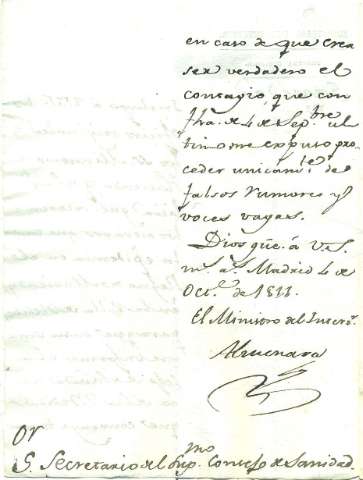 en caso de que crea
ser verdadero el
contagio, que con
fha. de 4 de Sep.bre ul
timo me expuso pro
ceder unicam.te de
falsos rumores y
voces vagas.
Dios gue. á V.S.
m.s a.s Madrid 4 de
Oct.e de 1811.
El Ministro del Inter.r
Almenara
Or
S. Secretario del Sup.mo Consejo de Sanidad.